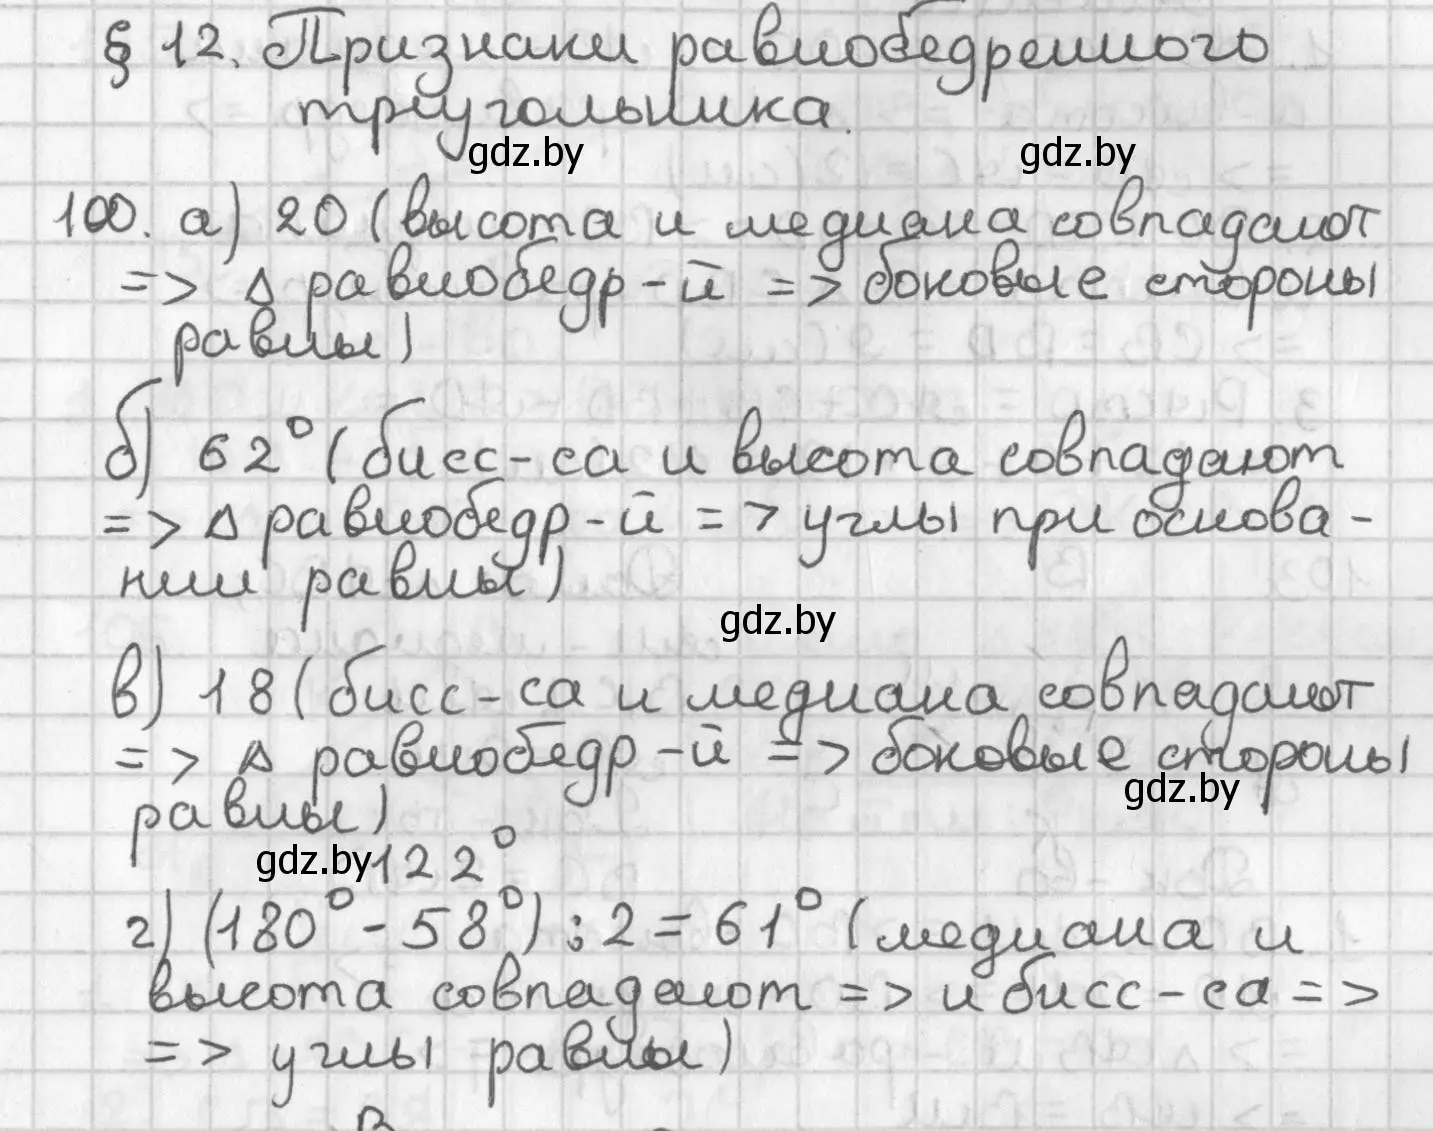 § 12. Признаки равнобедренного
треугольника.
gdz.by gdz.by
100. а) 20 (высота и медиана совпадают
=> Δ равнобедр-й => боковые стороны
равны)
б) 62° (бисс-са и высота совпадают
=> Δ равнобедр-й => углы при основа-
нии равны)
gdz.by
в) 18 (бисс-са и медиана совпадают
=> Δ равнобедр-й => боковые стороны
gdz.by
равны)
gdz.by 122°
г) (180° - 58°) : 2 = 61° (медиана и
высота совпадают => и бисс-са =>
=> углы равны)
В